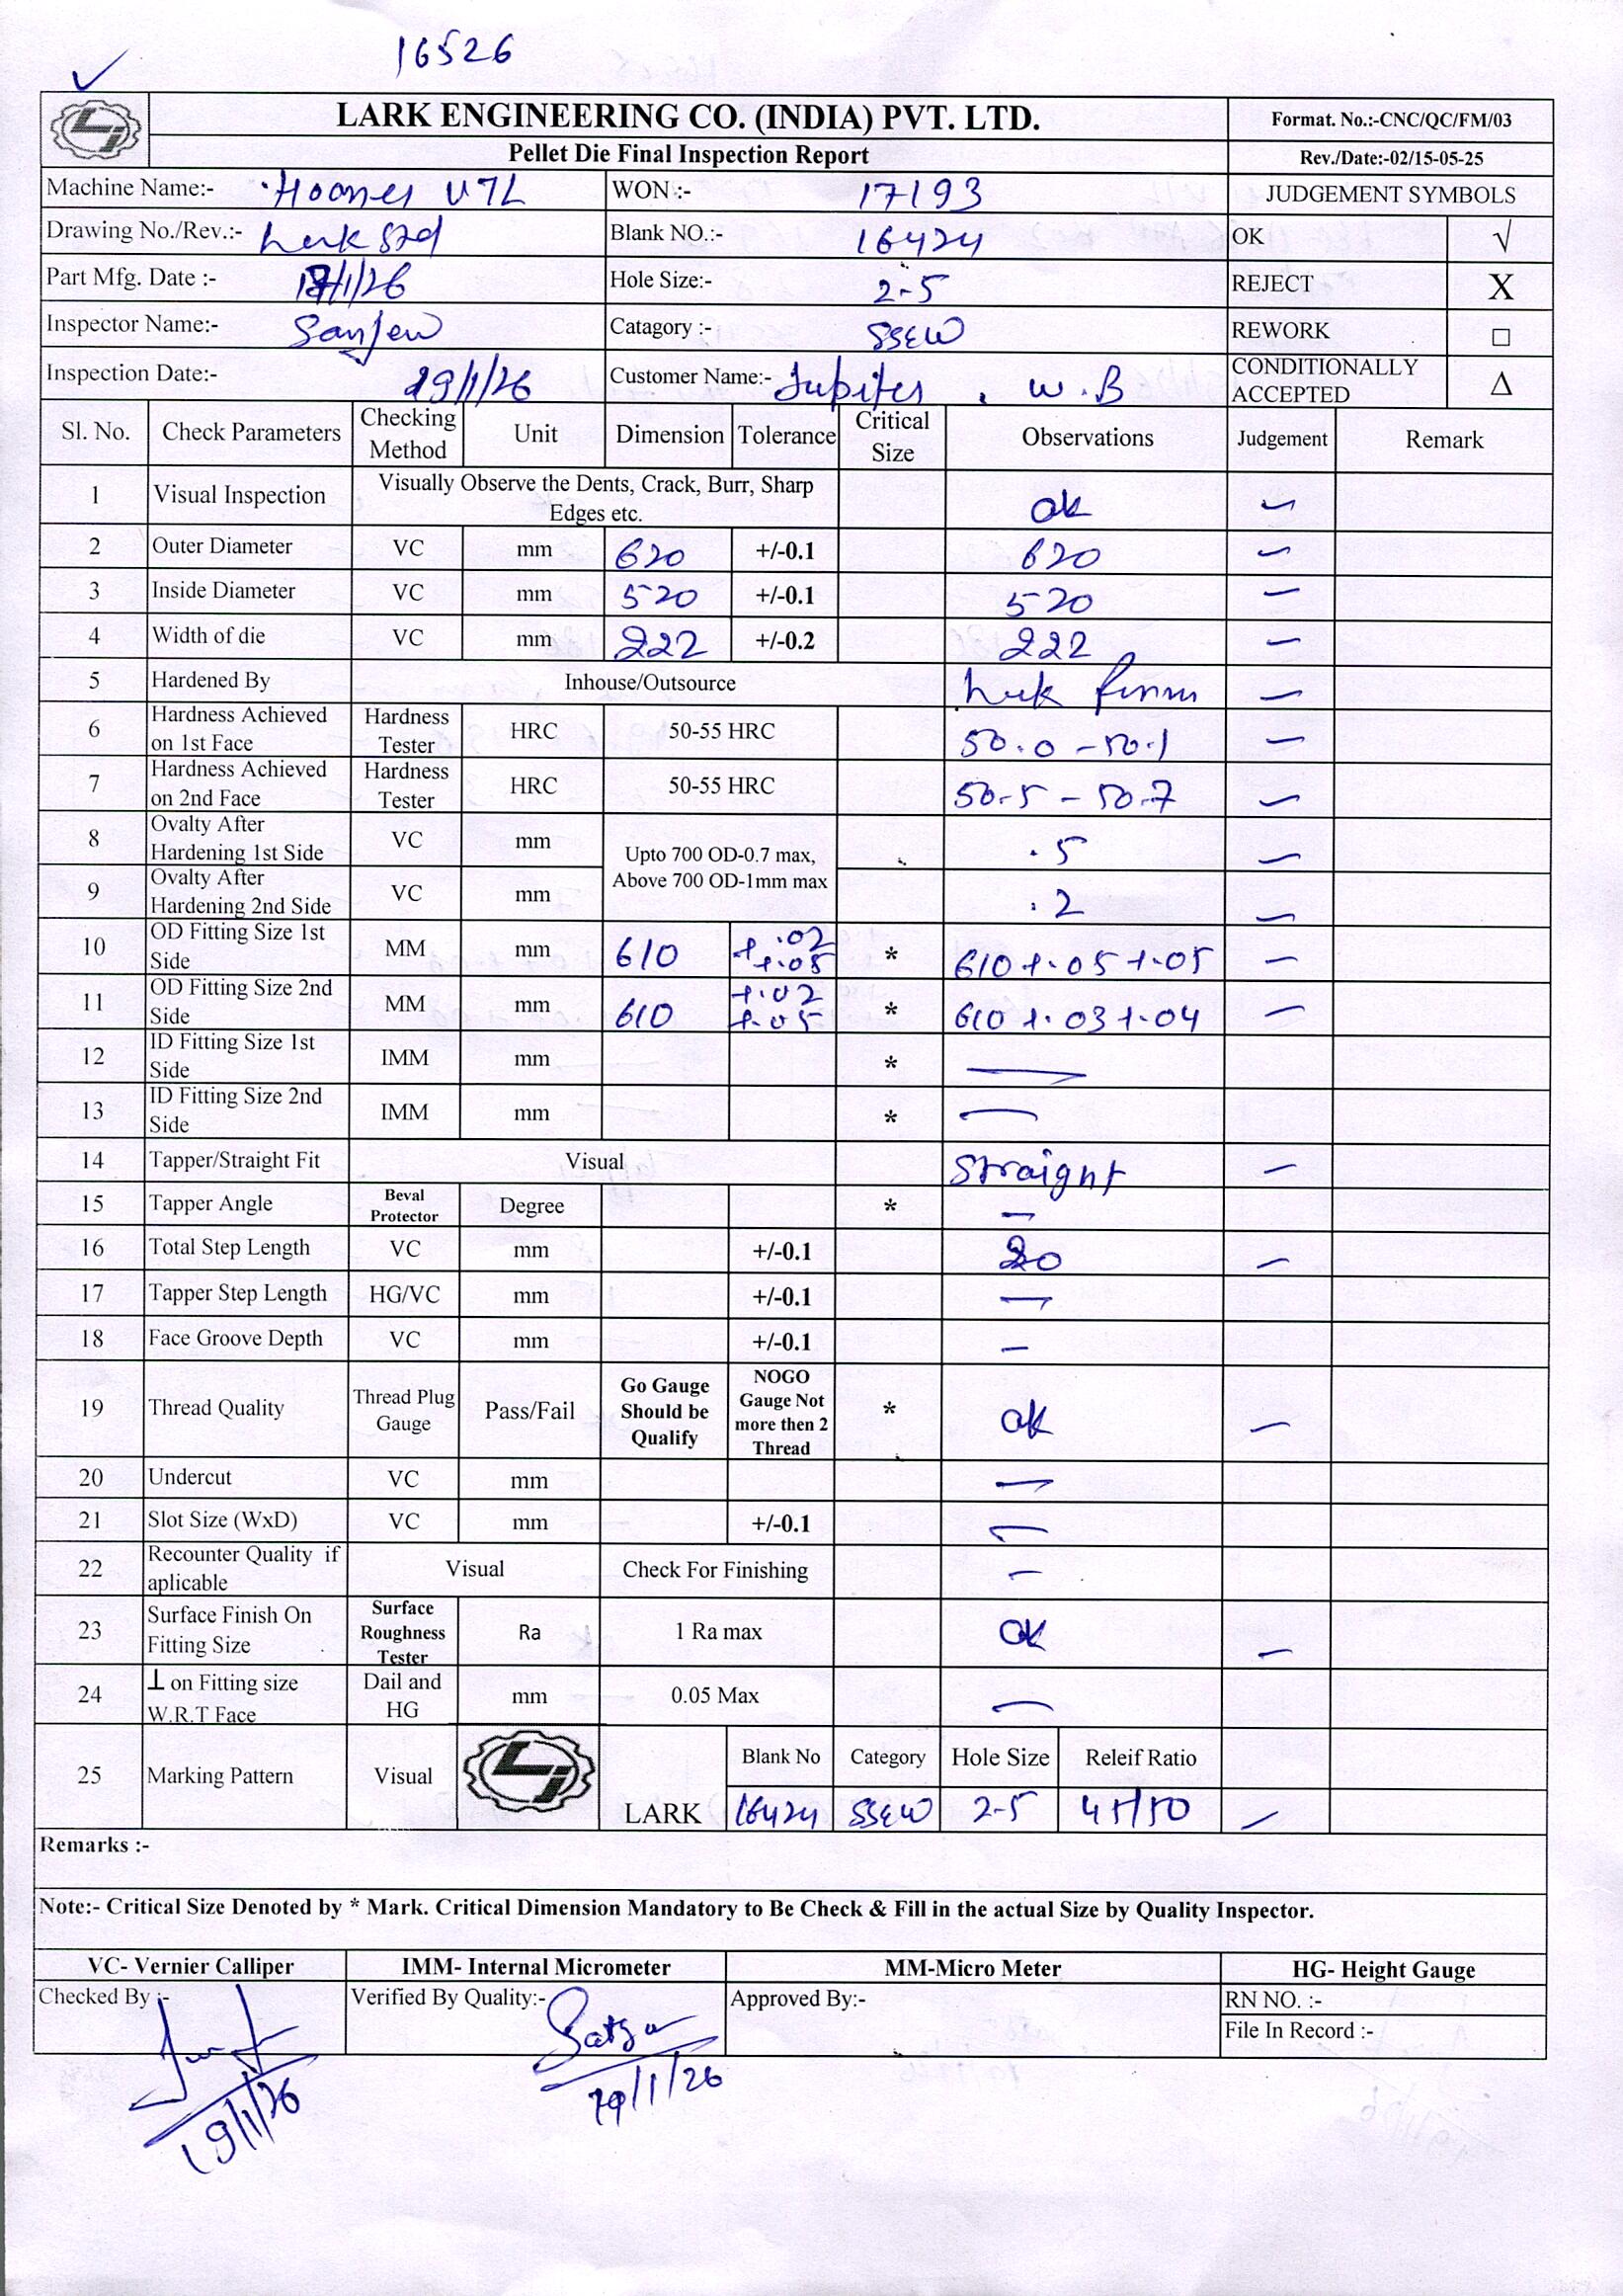 16526
LARK ENGINEERING CO. (INDIA) PVT. LTD.
Format. No.:-CNC/QC/FM/03
Pellet Die Final Inspection Report
Rev./Date:-02/15-05-25
Machine Name:- U7L
WON :- 17193
JUDGEMENT SYMBOLS
Drawing No./Rev.:- std
Blank NO.:- 16424
OK √
Part Mfg. Date :- /1/26
Hole Size:- 2-5
REJECT X
Inspector Name:- Sanjew
Catagory :- SSEW
REWORK □
Inspection Date:- 19/1/26
Customer Name:- Jupiter, W.B
CONDITIONALLY ACCEPTED Δ
Sl. No. Check Parameters Checking Method Unit Dimension Tolerance Critical Size Observations Judgement Remark
1 Visual Inspection Visually Observe the Dents, Crack, Burr, Sharp Edges etc. ok
2 Outer Diameter VC mm 620 +/-0.1 620
3 Inside Diameter VC mm 520 +/-0.1 520
4 Width of die VC mm 222 +/-0.2 222
5 Hardened By Inhouse/Outsource
6 Hardness Achieved on 1st Face Hardness Tester HRC 50-55 HRC 50.0 - 50.1
7 Hardness Achieved on 2nd Face Hardness Tester HRC 50-55 HRC 50.5 - 50.7
8 Ovalty After Hardening 1st Side VC mm Upto 700 OD-0.7 max, Above 700 OD-1mm max .5
9 Ovalty After Hardening 2nd Side VC mm .2
10 OD Fitting Size 1st Side MM mm 610 +.02 +.05 * 610 +.05 +.05
11 OD Fitting Size 2nd Side MM mm 610 +.02 +.05 * 610 +.03 +.04
12 ID Fitting Size 1st Side IMM mm * —
13 ID Fitting Size 2nd Side IMM mm * —
14 Tapper/Straight Fit Visual Straight
15 Tapper Angle Beval Protector Degree * —
16 Total Step Length VC mm +/-0.1 20
17 Tapper Step Length HG/VC mm +/-0.1 —
18 Face Groove Depth VC mm +/-0.1 —
19 Thread Quality Thread Plug Gauge Pass/Fail Go Gauge Should be Qualify NOGO Gauge Not more then 2 Thread * ok
20 Undercut VC mm —
21 Slot Size (WxD) VC mm +/-0.1 —
22 Recounter Quality if aplicable Visual Check For Finishing —
23 Surface Finish On Fitting Size Surface Roughness Tester Ra 1 Ra max OK
24 ⊥ on Fitting size W.R.T Face Dail and HG mm 0.05 Max —
25 Marking Pattern Visual LARK
Blank No Category Hole Size Releif Ratio
16424 SSEW 2-5 45/50
Remarks :-
Note:- Critical Size Denoted by * Mark. Critical Dimension Mandatory to Be Check & Fill in the actual Size by Quality Inspector.
VC- Vernier Calliper IMM- Internal Micrometer MM-Micro Meter HG- Height Gauge
Checked By :- Verified By Quality:- Approved By:- RN NO. :-
File In Record :-
19/1/26